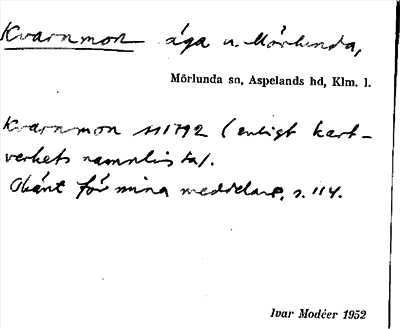 Kvarnmon äga u. Mörlunda,
Mörlunda sn, Aspelands hd, Klm. l.
Kvarnmon 1792 (enligt kart-
verkets namnlista).
Okänt för mina meddelare, s. 114.
Ivar Modéer 1952